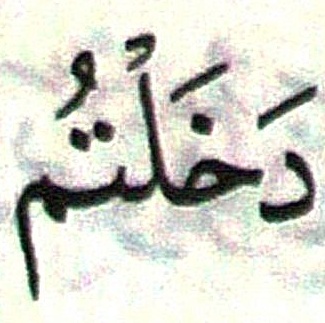 دَخَلْتُم